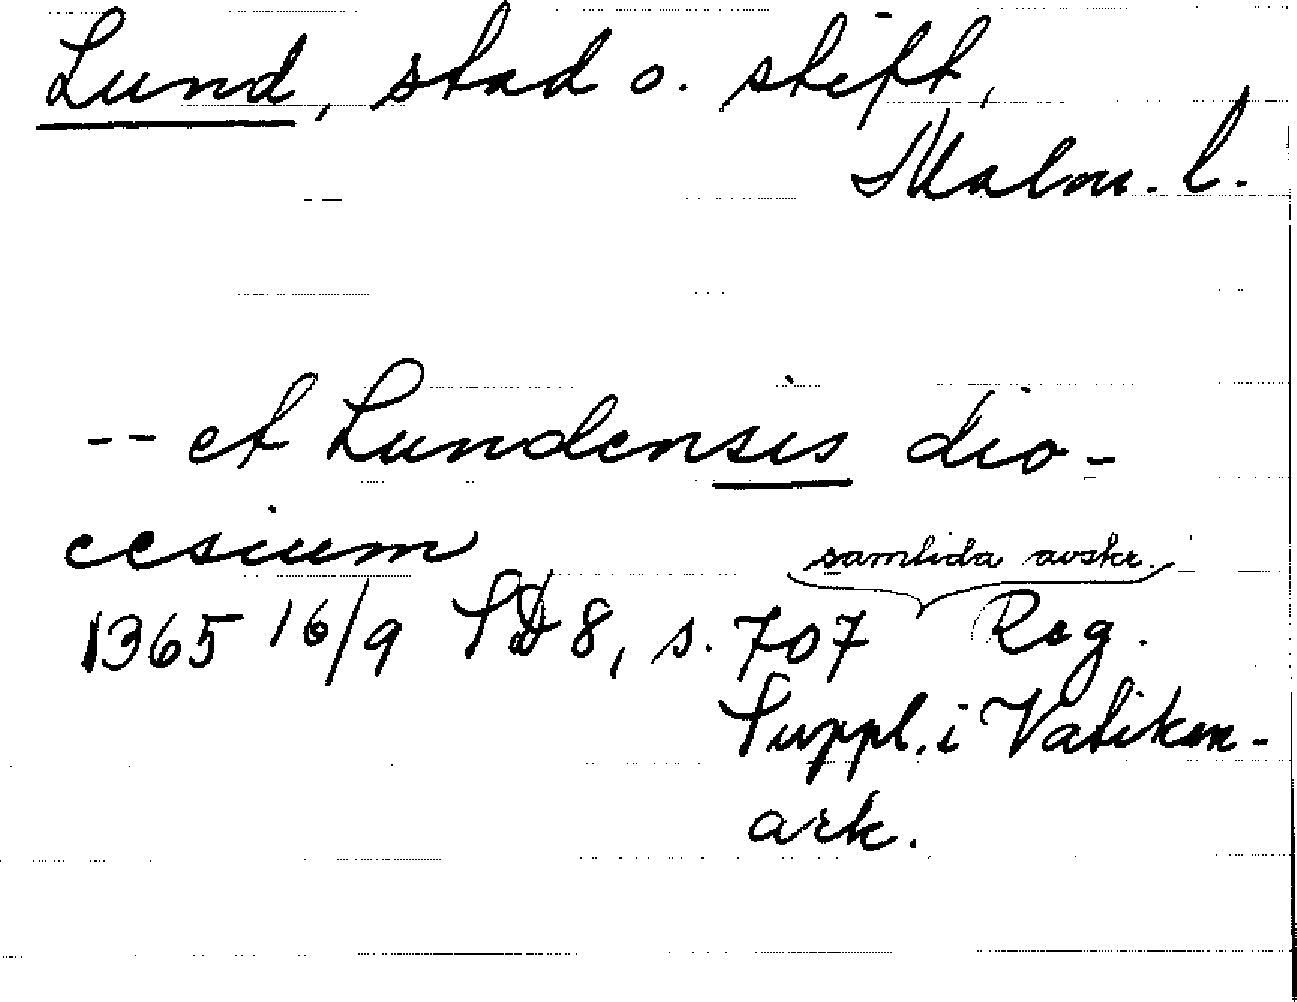 Lund, stad o. stift,
Malm. l.
-- et Lundensis dio-
cesium
samtida avskr.
1365 16/9 SD 8, s. 707 Reg.
Suppl. i Vatikan-
ark.